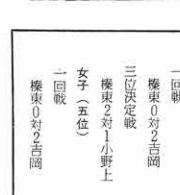 一回戦
榛東0対2吉岡
三位決定戦
榛東2対1小野上
女子（五位）
一回戦
榛東0対2吉岡